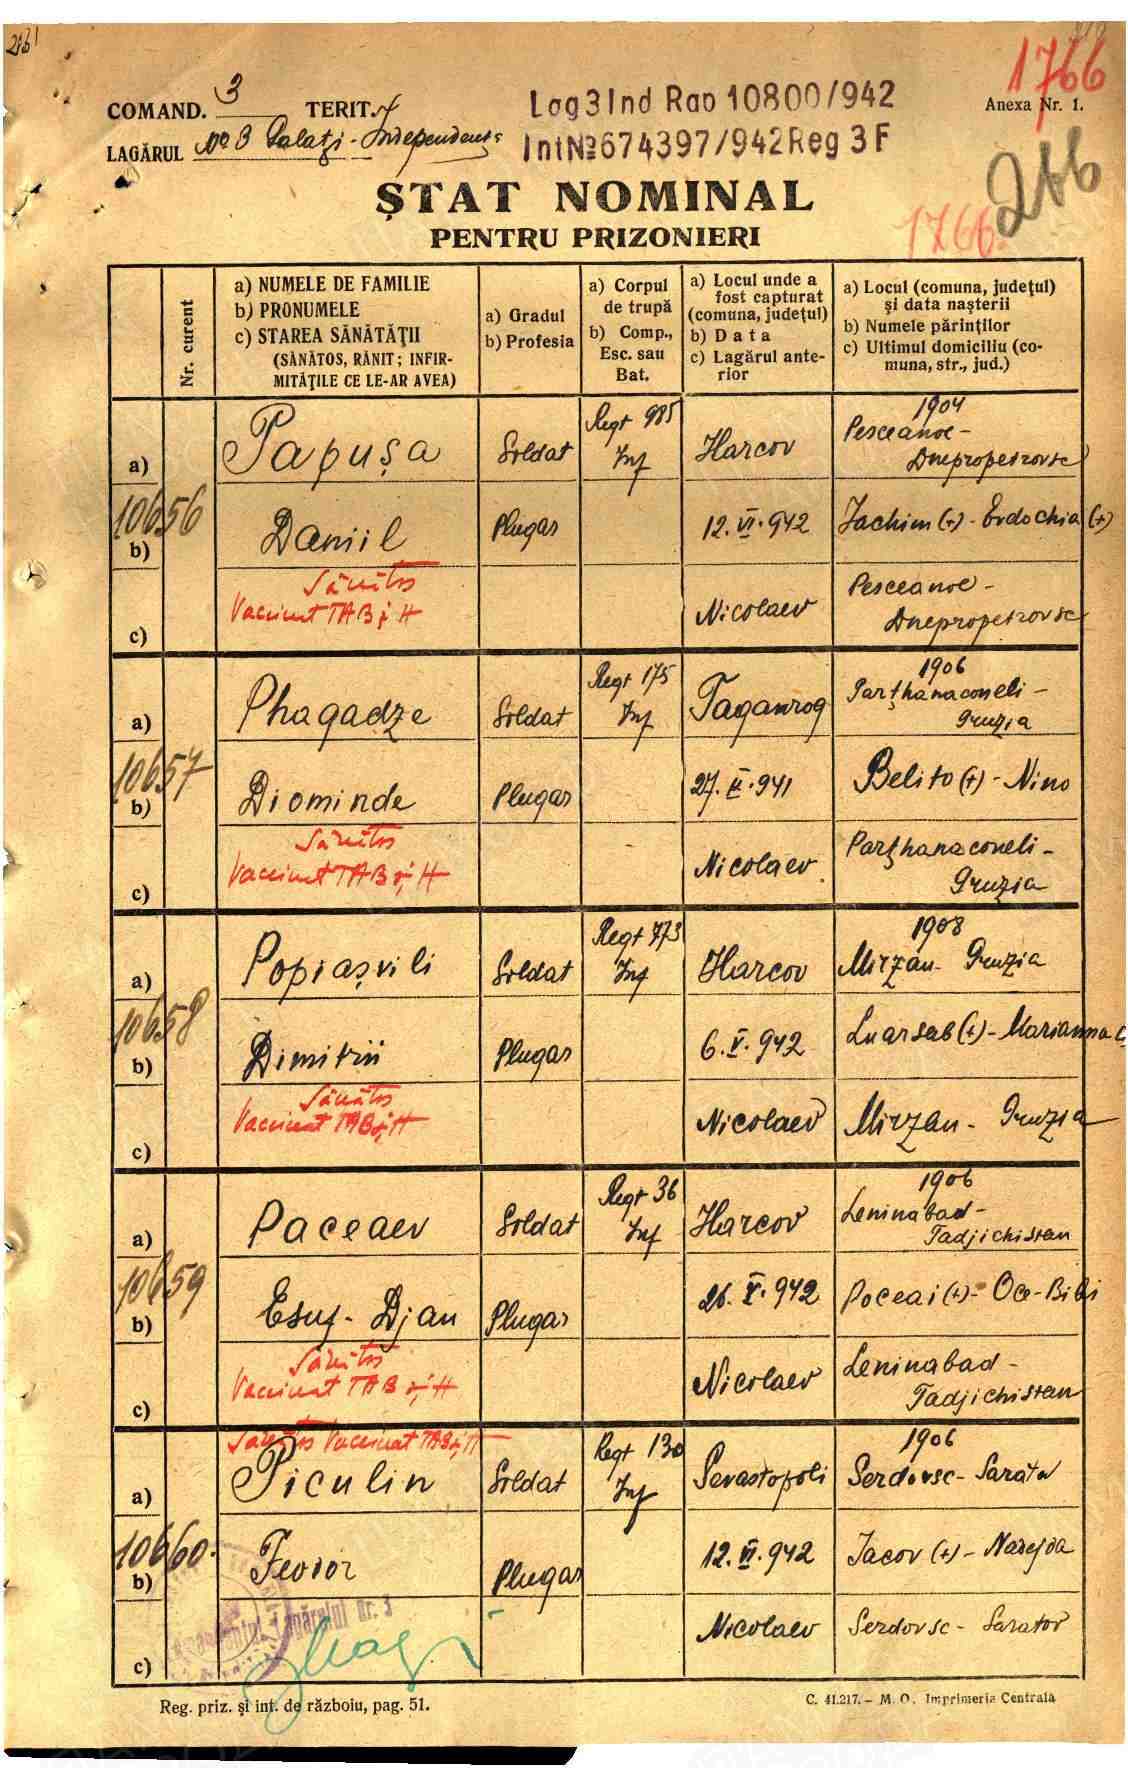 1766
COMAND. 3 TERIT.
Lag 3 Ind Rap 10800/942
Anexa Nr. 1.
LAGĂRUL No 3 Galați-Independența
Int No 674397/942 Reg 3 F
266
ȘTAT NOMINAL
1766.
PENTRU PRIZONIERI
Nr. curent
a) NUMELE DE FAMILIE
b) PRONUMELE
c) STAREA SĂNĂTĂȚII
(SĂNĂTOS, RĂNIT; INFIR-
MITĂȚILE CE LE-AR AVEA)
a) Gradul
b) Profesia
a) Corpul
de trupă
b) Comp.,
Esc. sau
Bat.
a) Locul unde a
fost capturat
(comuna, județul)
b) Data
c) Lagărul ante-
rior
a) Locul (comuna, județul)
și data nașterii
b) Numele părinților
c) Ultimul domiciliu (co-
muna, str., jud.)
10656
a) Papușa
Soldat
Regt 985
Inf
Harcov
1904
Pesceanoe-
Dnepropetrovsc
b) Daniil
Plugar
12.VI.942
Iachim (+) - Evdochia (+)
c) Sănătos
Vaccinat TAB și H
Nicolaev
Pesceanoe-
Dnepropetrovsc
10657
a) Phagadze
Soldat
Regt 175
Inf
Taganrog
1906
Parțhanaconeli-
Gruzia
b) Diominde
Plugar
Belito (+) - Nino
c) Sănătos
Vaccinat TAB și H
Nicolaev
Parțhanaconeli-
Gruzia
10658
a) Popiașvili
Soldat
Regt 773
Inf
Harcov
1908
Mirzan- Gruzia
b) Dimitrii
Plugar
6.V.942
Luarsab (+) - Marianna
c) Sănătos
Vaccinat TAB și H
Nicolaev
Mirzan- Gruzia
10659
a) Paceaev
Soldat
Regt 36
Inf
Harcov
1906
Leninabad-
Tadjichistan
b) Esuf-Djan
Plugar
26.V.942
Poceai (+) - Oce-Bibi
c) Sănătos
Vaccinat TAB și H
Nicolaev
Leninabad-
Tadjichistan
10660.
Sănătos Vaccinat TAB și H
a) Piculin
Soldat
Regt 130
Inf
Sevastopoli
1906
Serdovsc- Saratov
b) Feodor
Plugar
12.VI.942
Iacov (+) - Nadejda
c)
Nicolaev
Serdovsc- Saratov
Lagărului Nr. 3
Reg. priz. și int. de război, pag. 51.
C. 41.217.- M. O. Imprimeria Centrală